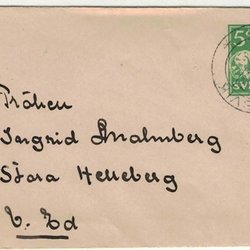 5
SVE
Fröken
Ingrid Malmberg
Stora Helleberg
C. Ed